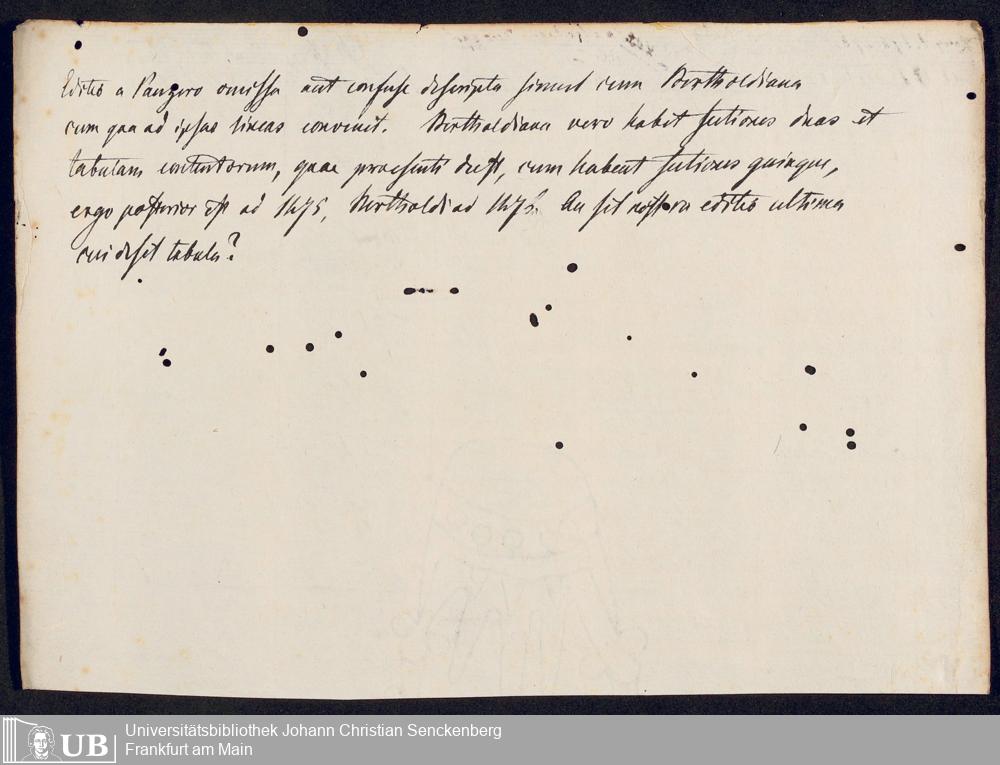 Editio a Panzero omissa aut confuse descripta simul cum Bertholdiana
cum qua ad ipsas lineas convenit. Bertholdiana vero habet sectiones duas et
tabulam contentorum, quae praesenti deest, cum habeat sectiones quinque,
ergo posterior est ad 1475, Bertholdi ad An sit nostra editio ultima
cui desit tabula?
UB
Universitätsbibliothek Johann Christian Senckenberg
Frankfurt am Main